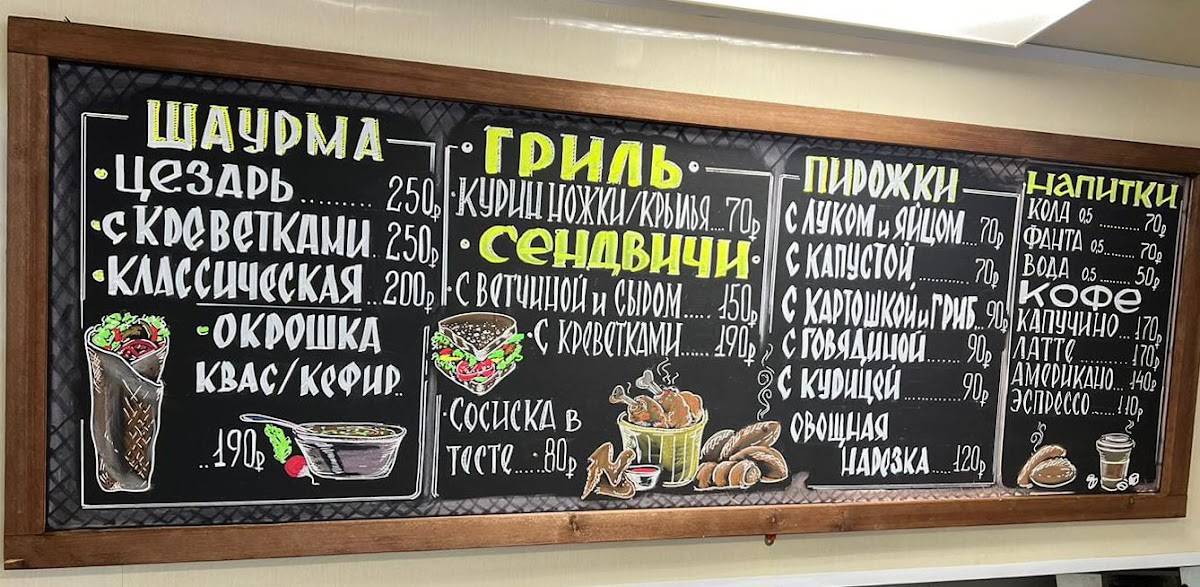 ШАУРМА
ЦЕЗАРЬ ......... 250р
С КРЕВЕТКАМИ 250р
КЛАССИЧЕСКАЯ ...200р
ОКРОШКА
КВАС/КЕФИР..
..190р
ГРИЛЬ
КУРИН НОЖКИ/КРЫЛЬЯ....70р
СЕНДВИЧИ
С ВЕТЧИНОЙ И СЫРОМ.....150р
С КРЕВЕТКАМИ......190р
СОСИСКА В
ТЕСТЕ.....80р
ПИРОЖКИ
С ЛУКОМ И ЯЙЦОМ ....70р
С КАПУСТОЙ ...........70р
С КАРТОШКОЙ И ГРИБ..90р
С ГОВЯДИНОЙ.......90р
С КУРИЦЕЙ ..........90р
ОВОЩНАЯ
НАРЕЗКА.....120р
НАПИТКИ
КОЛА 0.5 ........70р
ФАНТА 0.5 .......70р
ВОДА 0.5 .......50р
КОФЕ
КАПУЧИНО ...170р
ЛАТТЕ ..........170р
АМЕРИКАНО...140р
ЭСПРЕССО......110р